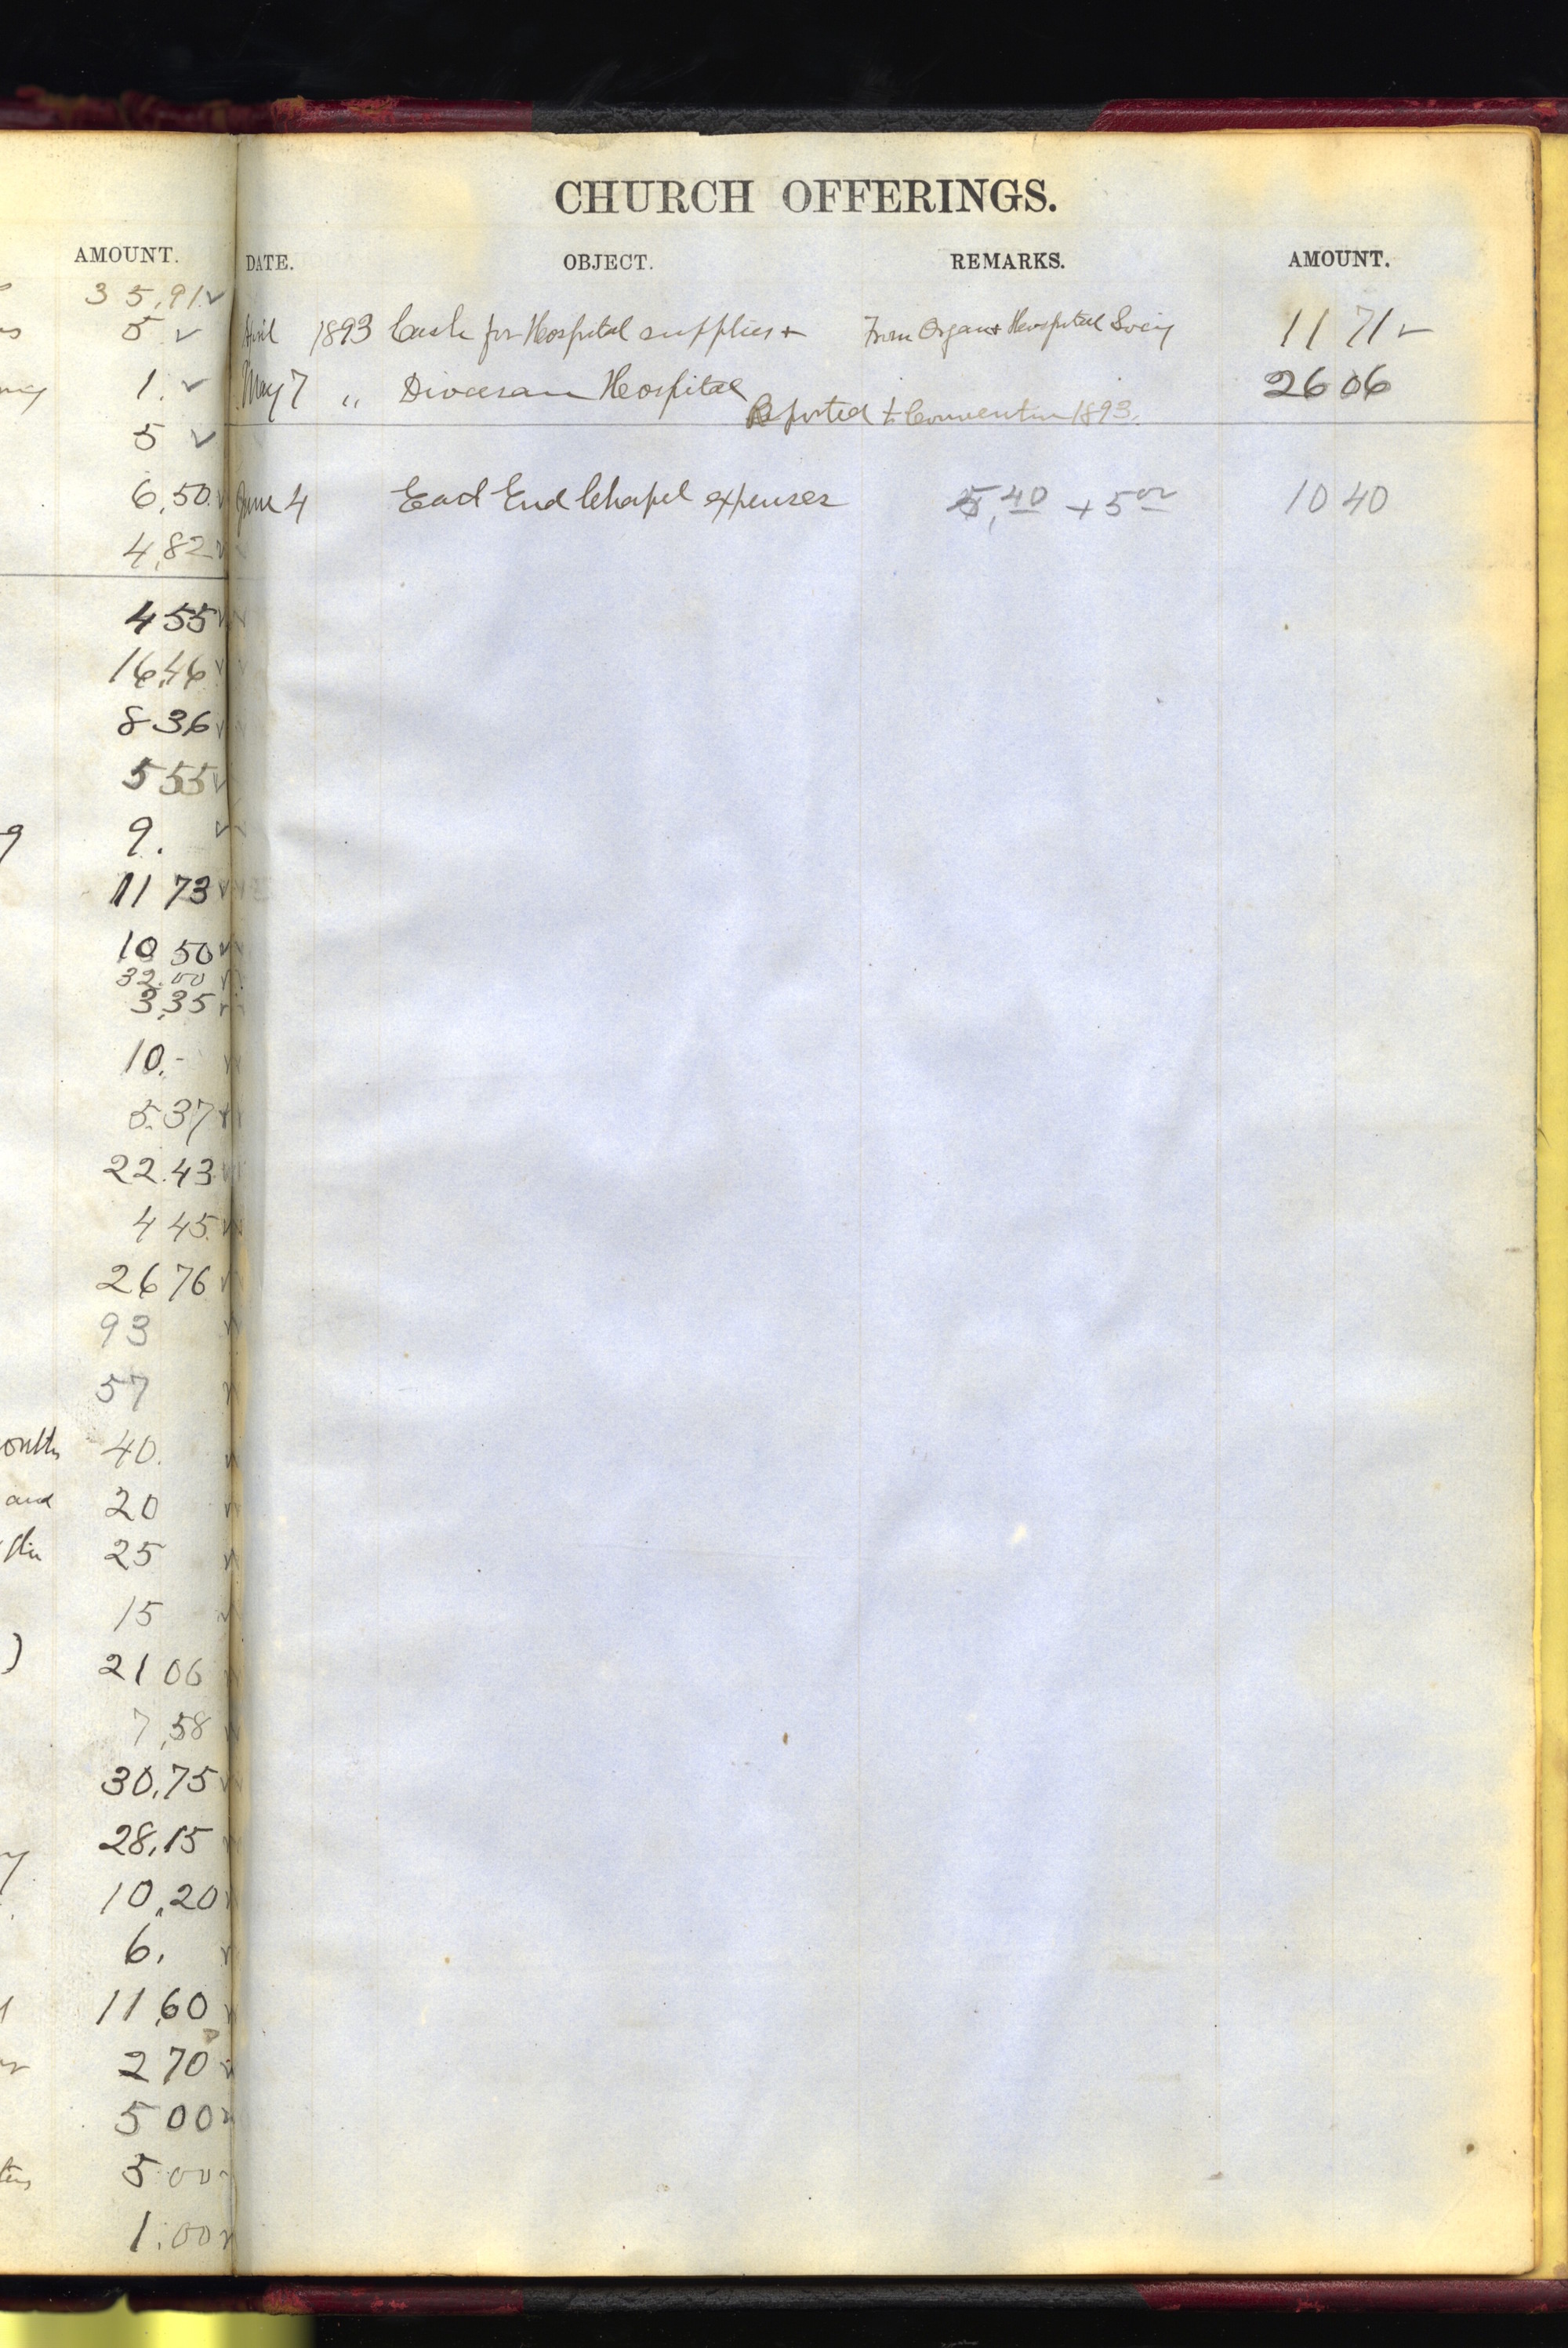 AMOUNT.
35,91 ✓
5 ✓
1. ✓
5 ✓
6,50 ✓
4,82 ✓
4 55 ✓
16,46 ✓
8 36 ✓
5 55 ✓
9. ✓
11 73 ✓
10 50 ✓
32.00 ✓
3,35 ✓
10.- ✓
5.37 ✓
22.43 ✓
4 45 ✓
26 76 ✓
93 ✓
57 ✓
onths 40. ✓
and 20 ✓
25 ✓
15 ✓
) 21 06 ✓
7,58 ✓
30,75 ✓
28,15 ✓
10,20 ✓
6. ✓
11,60 ✓
2 70 ✓
5 00 ✓
5 00 ✓
1.00 ✓
CHURCH OFFERINGS.
DATE. OBJECT. REMARKS. AMOUNT.
April 1893 Cash for Hospital supplies + From Organ & Hospital Socy 11 71 ✓
May 7 " Diocesan Hospital 26 06
Reported to Convention 1893.
June 4 East End Chapel expenses 5,40 + 5 00 10 40